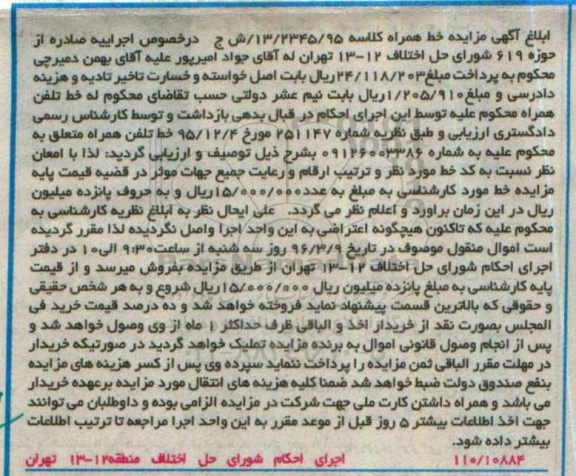 ابلاغ آگهی مزایده خط همراه کلاسه ۱۳/۲۳۴۵/۹۵/ش ج درخصوص اجراییه صادره از
حوزه ۶۱۹ شورای حل اختلاف ۱۲-۱۳ تهران له آقای جواد امیرپور علیه آقای بهمن دمیرچی
محکوم به پرداخت مبلغ۲۴/۱۱۸/۲۰۳ریال بابت اصل خواسته و خسارت تاخیر تادیه و هزینه
دادرسی و مبلغ۱/۲۰۵/۹۱۰ریال بابت نیم عشر دولتی حسب تقاضای محکوم له خط تلفن
همراه محکوم علیه توسط این اجرای احکام در قبال بدهی بازداشت و توسط کارشناس رسمی
دادگستری ارزیابی و طبق نظریه شماره ۲۵۱۱۴۷ مورخ ۹۵/۱۲/۴ خط تلفن همراه متعلق به
محکوم علیه به شماره ۰۹۱۲۶۰۰۳۳۸۶ بشرح ذیل توصیف و ارزیابی گردید: لذا با امعان
نظر نسبت به کد خط مورد نظر و ترتیب ارقام و رعایت جمیع جهات موثر در قضیه قیمت پایه
مزایده خط مورد کارشناسی به مبلغ به عدد۱۵/۰۰۰/۰۰۰ریال و به حروف پانزده میلیون
ریال در این زمان براورد و اعلام نظر می گردد. علی ایحال نظر به ابلاغ نظریه کارشناسی به
محکوم علیه که تاکنون هیچگونه اعتراضی به این واحد اجرا واصل نگردیده لذا مقرر گردیده
است اموال منقول موصوف در تاریخ ۹۶/۳/۹ روز سه شنبه از ساعت۹:۳۰ الی۱۰ در دفتر
اجرای احکام شورای حل اختلاف ۱۲-۱۳ تهران از طریق مزایده بفروش میرسد و از قیمت
پایه کارشناسی به مبلغ پانزده میلیون ریال ۱۵/۰۰۰/۰۰۰ریال شروع و به هر شخص حقیقی
و حقوقی که بالاترین قسمت پیشنهاد نماید فروخته خواهد شد و ده درصد قیمت خرید فی
المجلس بصورت نقد از خریدار اخذ و الباقی ظرف حداکثر ۱ ماه از وی وصول خواهد شد و
پس از انجام وصول قانونی اموال به برنده مزایده تملیک خواهد گردید در صورتیکه خریدار
در مهلت مقرر الباقی ثمن مزایده را پرداخت ننماید سپرده وی پس از کسر هزینه های مزایده
بنفع صندوق دولت ضبط خواهد شد ضمنا کلیه هزینه های انتقال مورد مزایده برعهده خریدار
می باشد و همراه داشتن کارت ملی جهت شرکت در مزایده الزامی بوده و داوطلبان می توانند
جهت اخذ اطلاعات بیشتر ۵ روز قبل از موعد مقرر به این واحد اجرا مراجعه تا ترتیب اطلاعات
بیشتر داده شود.
۱۱۰/۱۰۸۸۴ اجرای احکام شورای حل اختلاف منطقه۱۲-۱۳ تهران